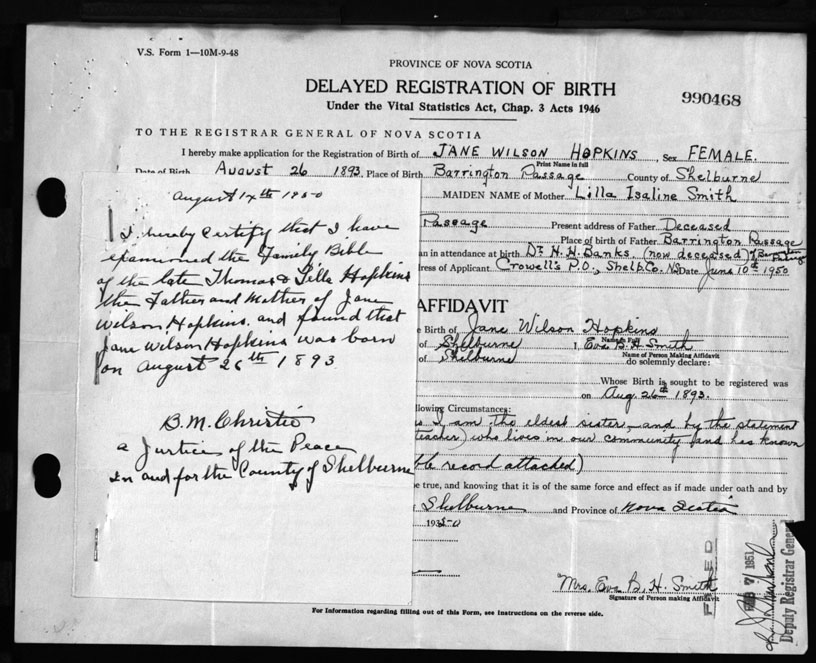 V.S. Form 1—10M-9-48
PROVINCE OF NOVA SCOTIA
DELAYED REGISTRATION OF BIRTH
Under the Vital Statistics Act, Chap. 3 Acts 1946
990468
TO THE REGISTRAR GENERAL OF NOVA SCOTIA
I hereby make application for the Registration of Birth of JANE WILSON HOPKINS, Sex FEMALE.
Print Name in full
Date of Birth August 26 1893. Place of Birth Barrington Passage County of Shelburne
MAIDEN NAME of Mother Lilla Isaline Smith
Passage Present address of Father Deceased
Place of birth of Father Barrington Passage
an in attendance at birth Dr. H. H. Banks (now deceased) of Barrington Passage
ress of Applicant Crowell's P.O., Shelb. Co. N.S. Date June 10th 1950
August 14th 1950
I hereby certify that I have
examined the Family Bible
of the late Thomas & Lilla Hopkins
the Father and Mother of Jane
Wilson Hopkins. and found that
Jane Wilson Hopkins was born
on August 26th 1893
B. M. Christie
a Justice of the Peace
in and for the County of Shelburne
AFFIDAVIT
e Birth of Jane Wilson Hopkins
Name in Full
of Shelburne I, Eva B. H. Smith
Name of Person Making Affidavit
of Shelburne do solemnly declare:
Whose Birth is sought to be registered was
on Aug. 26th 1893.
llowing Circumstances:
s I am the eldest sister and by the statement
teacher) who lives in our community and has known
ble record attached)
e true, and knowing that it is of the same force and effect as if made under oath and by
Shelburne and Province of Nova Scotia
1950
Mrs. Eva B. H. Smith
Signature of Person making Affidavit
FILED
FEB 7 1951
Deputy Registrar General
For Information regarding filling out of this Form, see Instructions on the reverse side.